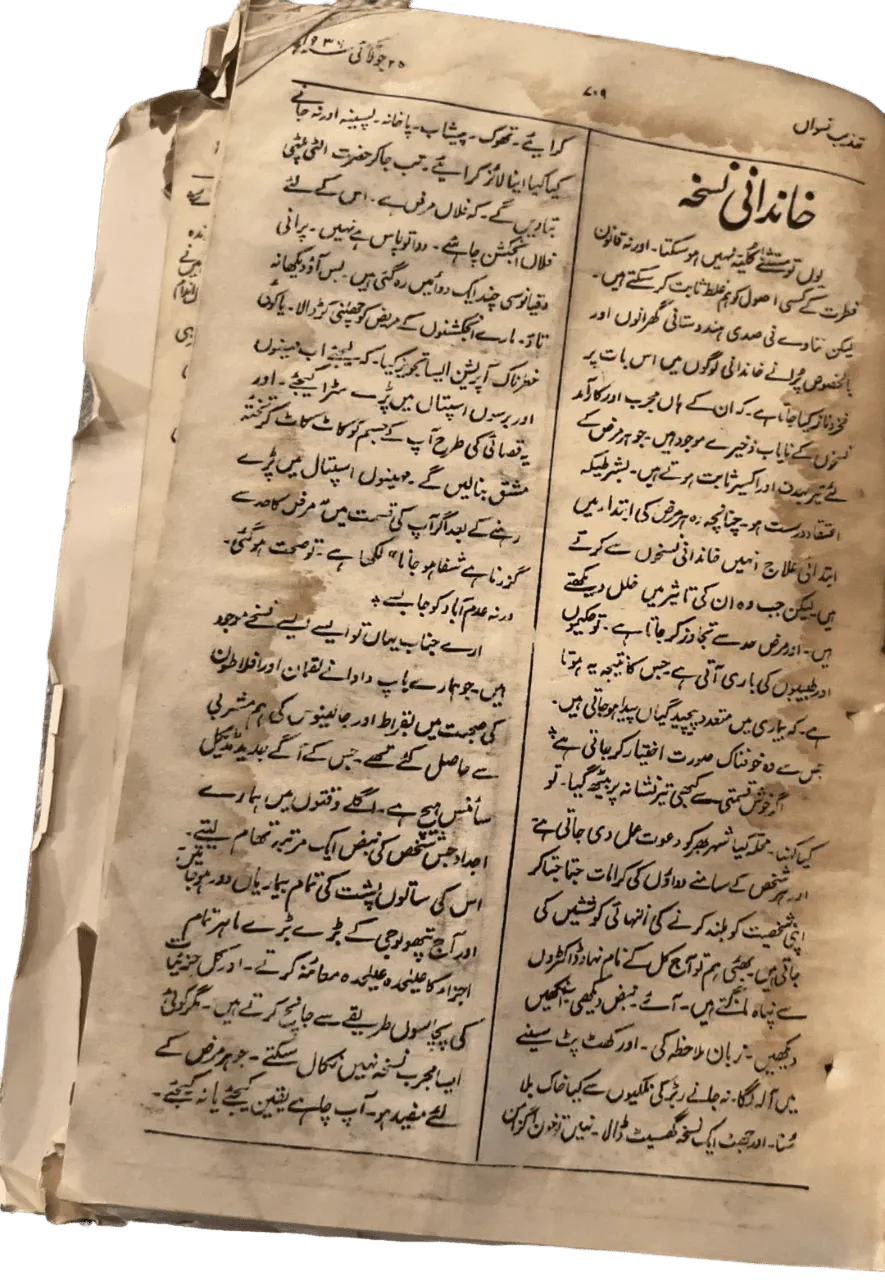 تہذیب نسواں
۷۰۹
۲۵ جولائی سنہ ۳۶ء
خاندانی نسخہ
یوں تو مستثنےٰ کلیتہً نہیں ہو سکتا۔ اور نہ قانون
فطرت کے کسی اصول کو ہم غلط ثابت کر سکتے ہیں۔
لیکن ننانوے فی صدی ہندوستانی گھرانوں اور
بالخصوص پرانے خاندانی لوگوں میں اس بات پر
فخر و ناز کیا جاتا ہے۔ کہ ان کے ہاں مجرب اور کارآمد
نسخوں کے نایاب ذخیرے موجود ہیں۔ جو ہر مرض کے
لئے تیر بہدف اور اکسیر ثابت ہوتے ہیں۔ بشرطیکہ
اعتقاد درست ہو۔ چنانچہ وہ ہر مرض کی ابتدا میں
ابتدائی علاج انہیں خاندانی نسخوں سے کرتے
ہیں لیکن جب وہ ان کی تاثیر میں خلل دیکھتے
ہیں۔ اور مرض حد سے تجاوز کر جاتا ہے۔ تو حکیموں
اور طبیبوں کی باری آتی ہے۔ جس کا نتیجہ یہ ہوتا
ہے۔ کہ بیماری میں متعدد پیچیدگیاں پیدا ہو جاتی ہیں۔
جس سے وہ خوفناک صورت اختیار کر جاتی ہے
اگر خوش قسمتی سے کبھی تیر نشانہ پر بیٹھ گیا۔ تو
کیا کہنا۔ محلہ کیا شہر بھر کو دعوت عمل دی جاتی ہے
اور ہر شخص کے سامنے دواؤں کی کرامات جتا جتا کر
اپنی شخصیت کو بلند کرنے کی انتہائی کوششیں کی
جاتی ہیں۔ بھئی ہم تو آج کل کے نام نہاد ڈاکٹروں
سے پناہ مانگتے ہیں۔ آئے نبض دیکھی آنکھیں
دیکھیں۔ زبان ملاحظہ کی۔ اور کھٹ پٹ سینے
میں آلہ لگا۔ نہ جانے ربڑ کی نلکیوں سے کیا خاک بلا
سنا۔ اور جھٹ ایک نسخہ گھسیٹ ڈالا۔ نہیں تو خون اگزامن
کرایئے۔ تھوک۔ پیشاب۔ پاخانہ۔ پسینہ اور نہ جانے
کیا کیا اینالائز کرایئے۔ تب جا کر حضرت الٹی پلٹی
بتادیں گے۔ کہ فلاں مرض ہے۔ اس کے لئے
فلاں انجکشن چاہئے۔ دوا تو پاس ہے نہیں۔ پرانی
دقیانوسی چند ایک دوائیں رہ گئی ہیں۔ بس آؤ دیکھا نہ
تاؤ۔ مارے انجکشنوں کے مریض کو چھلنی کر ڈالا۔ یا کوئی
خطرناک آپریشن ایسا تجویز کیا۔ کہ لیجئے اب مہینوں
اور برسوں اسپتال میں پڑے سڑا کیجئے۔ اور
یہ قصائی کی طرح آپ کے جسم کو کاٹ کاٹ کر تختہ
مشق بنا لیں گے۔ مہینوں اسپتال میں پڑے
رہنے کے بعد اگر آپ کی قسمت میں "مرض کا حد سے
گزرنا ہے شفا ہو جانا" لکھا ہے۔ تو صحت ہو گئی۔
ورنہ عدم آباد کو جا بسے
ارے جناب یہاں تو ایسے ایسے نسخے موجود
ہیں۔ جو ہمارے باپ دادا نے لقمان اور افلاطون
کی صحبت میں بقراط اور جالینوس کی ہم مشربی
سے حاصل کئے تھے۔ جس کے آگے جدید میڈیکل
سائنس ہیچ ہے۔ اگلے وقتوں میں ہمارے
اجداد جس شخص کی نبض ایک مرتبہ تھام لیتے۔
اس کی ساتوں پشت کی تمام بیماریاں دور ہو جاتیں۔
اور آج پتھولوجی کے بڑے بڑے ماہر تمام
اجزاء کا علیحدہ علیحدہ معائنہ کرتے۔ اور کل جزئیات
کی پچاسوں طریقے سے جانچ کرتے ہیں۔ مگر کوئی
ایسا مجرب نسخہ نہیں نکال سکتے۔ جو ہر مرض کے
لئے مفید ہو۔ آپ چاہے یقین کیجئے یا نہ کیجئے۔